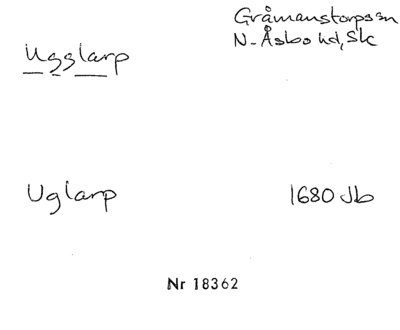 Gråmanstorps sn
N. Åsbo hd, Sk
Ugglarp
Uglarp 1680 Jb
Nr 18362